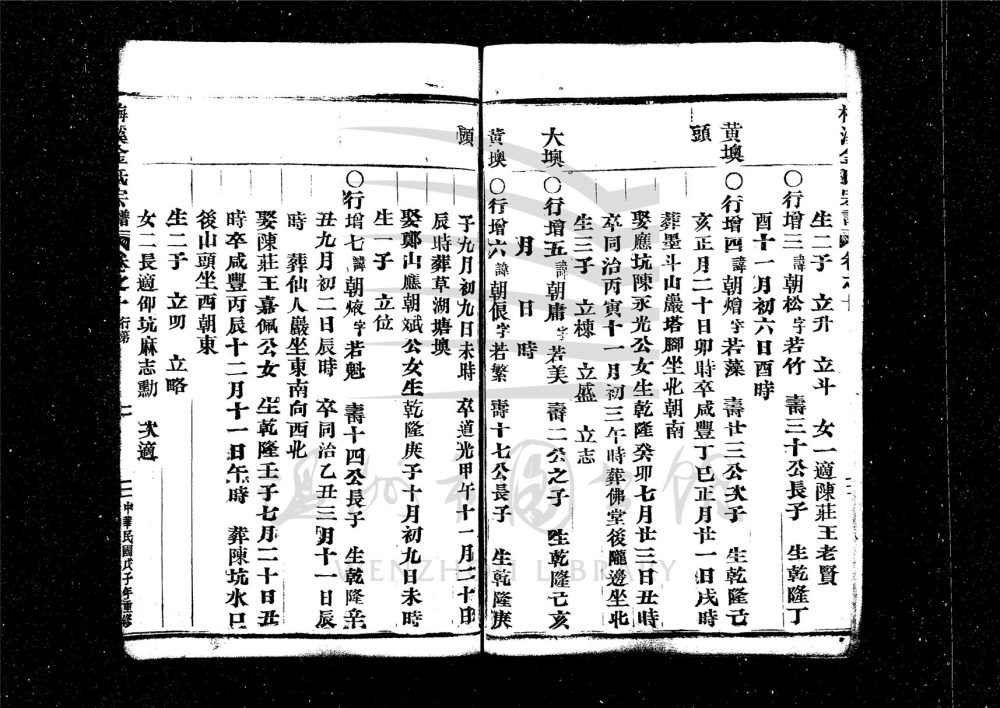 生二子　立升　立斗　女一適陳莊王老賢
〇行增三諱朝松字若竹　壽三十公長子　生乾隆丁
酉十一月初六日酉時
黄墺　〇行增四諱朝熷字若藻　壽廿三公次子　生乾隆己
頭　亥正月二十日卯時卒咸豐丁巳正月廿一日戌時
葬墨斗山巖塔腳坐北朝南
娶應坑陳永光公女生乾隆癸卯七月廿三日丑時
卒同治丙寅十一月初三午時葬佛堂後隴邊坐北
生三子　立棟　立盛　立志
大墺　〇行增五諱朝庸字若美　壽二公之子　生乾隆己亥
月　日　時
黄墺　〇行增六諱朝佷字若繁　壽十七公長子　生乾隆庚
頭　子九月初九日未時　卒道光甲午十一月二十日
辰時葬草湖塘墺
娶鄭山應朝斌公女生乾隆庚子十月初九日未時
生一子　立位
〇行增七諱朝焲字若魁　壽十四公長子　生乾隆辛
丑九月初二日辰時　卒同治乙丑三月十一日辰
時　葬仙人巖坐東南向西北
娶陳莊王嘉佩公女　生乾隆壬子七月二十日丑
時卒咸豐丙辰十二月十一日午時　葬陳坑水口
後山頭坐酉朝東
生二子　立明　立略
女二長適仰坑麻志勳　次適
梅溪金氏宗譜　卷之十　行第　中華民國戊子年重修
WENZHOU LIBRARY